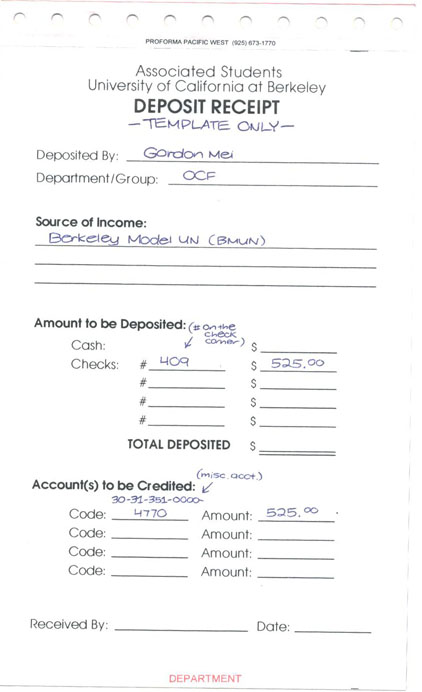 PROFORMA PACIFIC WEST (925) 673-1770
Associated Students
University of California at Berkeley
DEPOSIT RECEIPT
- TEMPLATE ONLY -
Deposited By: Gordon Mei
Department/Group: OCF
Source of Income:
Berkeley Model UN (BMUN)
Amount to be Deposited: (# on the check corner)
Cash: $
Checks: # 409 $ 525.00
# $
# $
# $
TOTAL DEPOSITED $
(misc. acct.)
Account(s) to be Credited:
30-31-351-0000-
Code: 4770 Amount: 525.00
Code: Amount:
Code: Amount:
Code: Amount:
Received By: Date:
DEPARTMENT